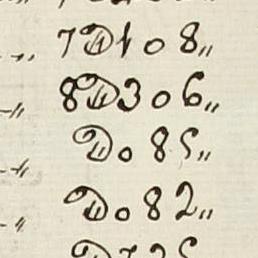 7 D 1 0 8 „
8 D 3 0 6 „
D 0 8 5 „
D 0 8 2 „